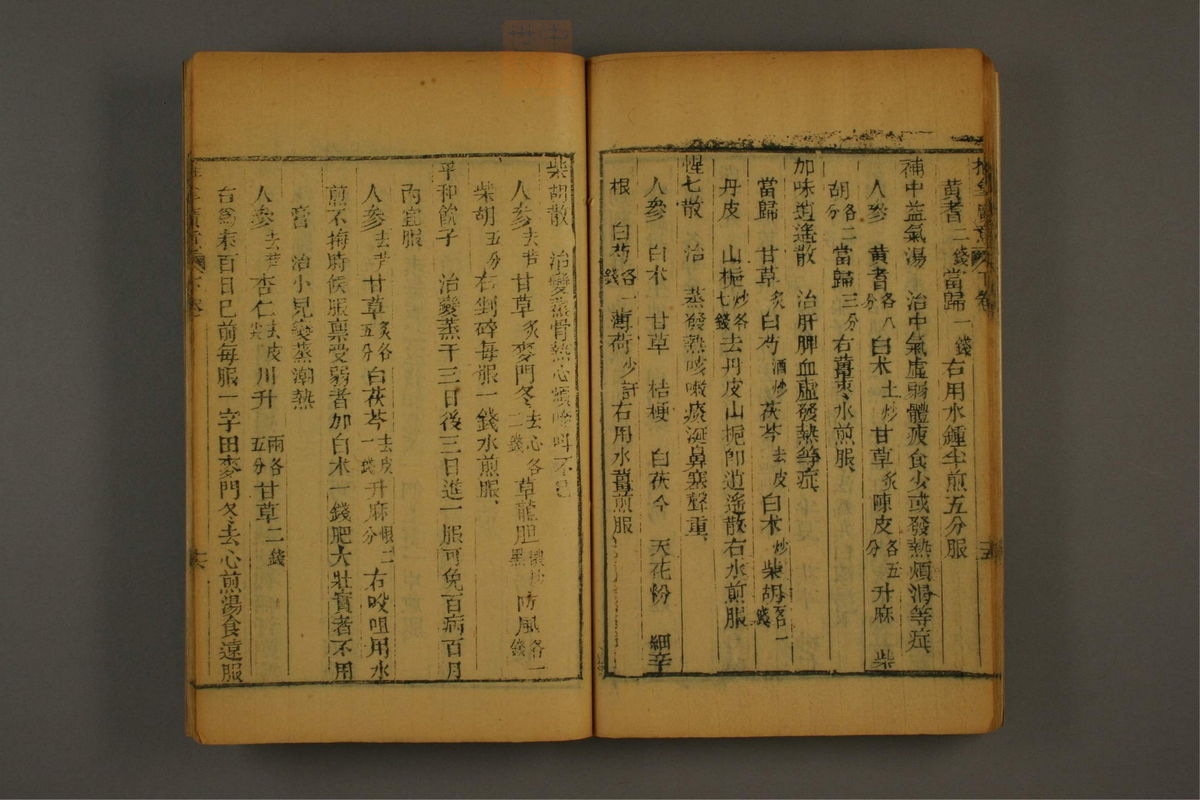 黄耆二錢當歸一錢右用水鍾半煎五分服
補中益氣湯 治中氣虛弱體疲食少或發熱煩渴等症
人參 黄耆各八分白朮土炒甘草炙陳皮各五分升麻 柴
胡各二分當歸三分右薑棗水煎服
加味逍遙散 治肝脾血虛發熱等症
當歸 甘草炙白芍酒炒茯苓去皮白朮炒柴胡各一錢
丹皮 山梔炒各七錢去丹皮山梔即逍遙散右水煎服
惺七散 治 蒸發熱咳嗽痰涎鼻塞聲重
人參 白朮 甘草 桔梗 白茯苓 天花粉 細辛
根 白芍各一錢薄荷少許右用水薑煎服
柴胡散 治變蒸骨熱心煩啼叫不已
人參去芦甘草炙麥門冬去心各二錢草龍胆 防風各一錢
柴胡五分右剉碎每服一錢水煎服
平和飲子 治變蒸于三日後三日進一服可免百病百月
內宜服
人參去芦甘草炙各五分白茯苓去皮一錢升麻二分右㕮咀用水
煎不拘時候服禀受弱者加白朮一錢肥大壯實者不用
膏 治小兒变蒸潮熱
人參去芦杏仁去皮尖川升 五分甘草二錢
右為末百日已前每服一字用麥門冬去心煎湯食遠服